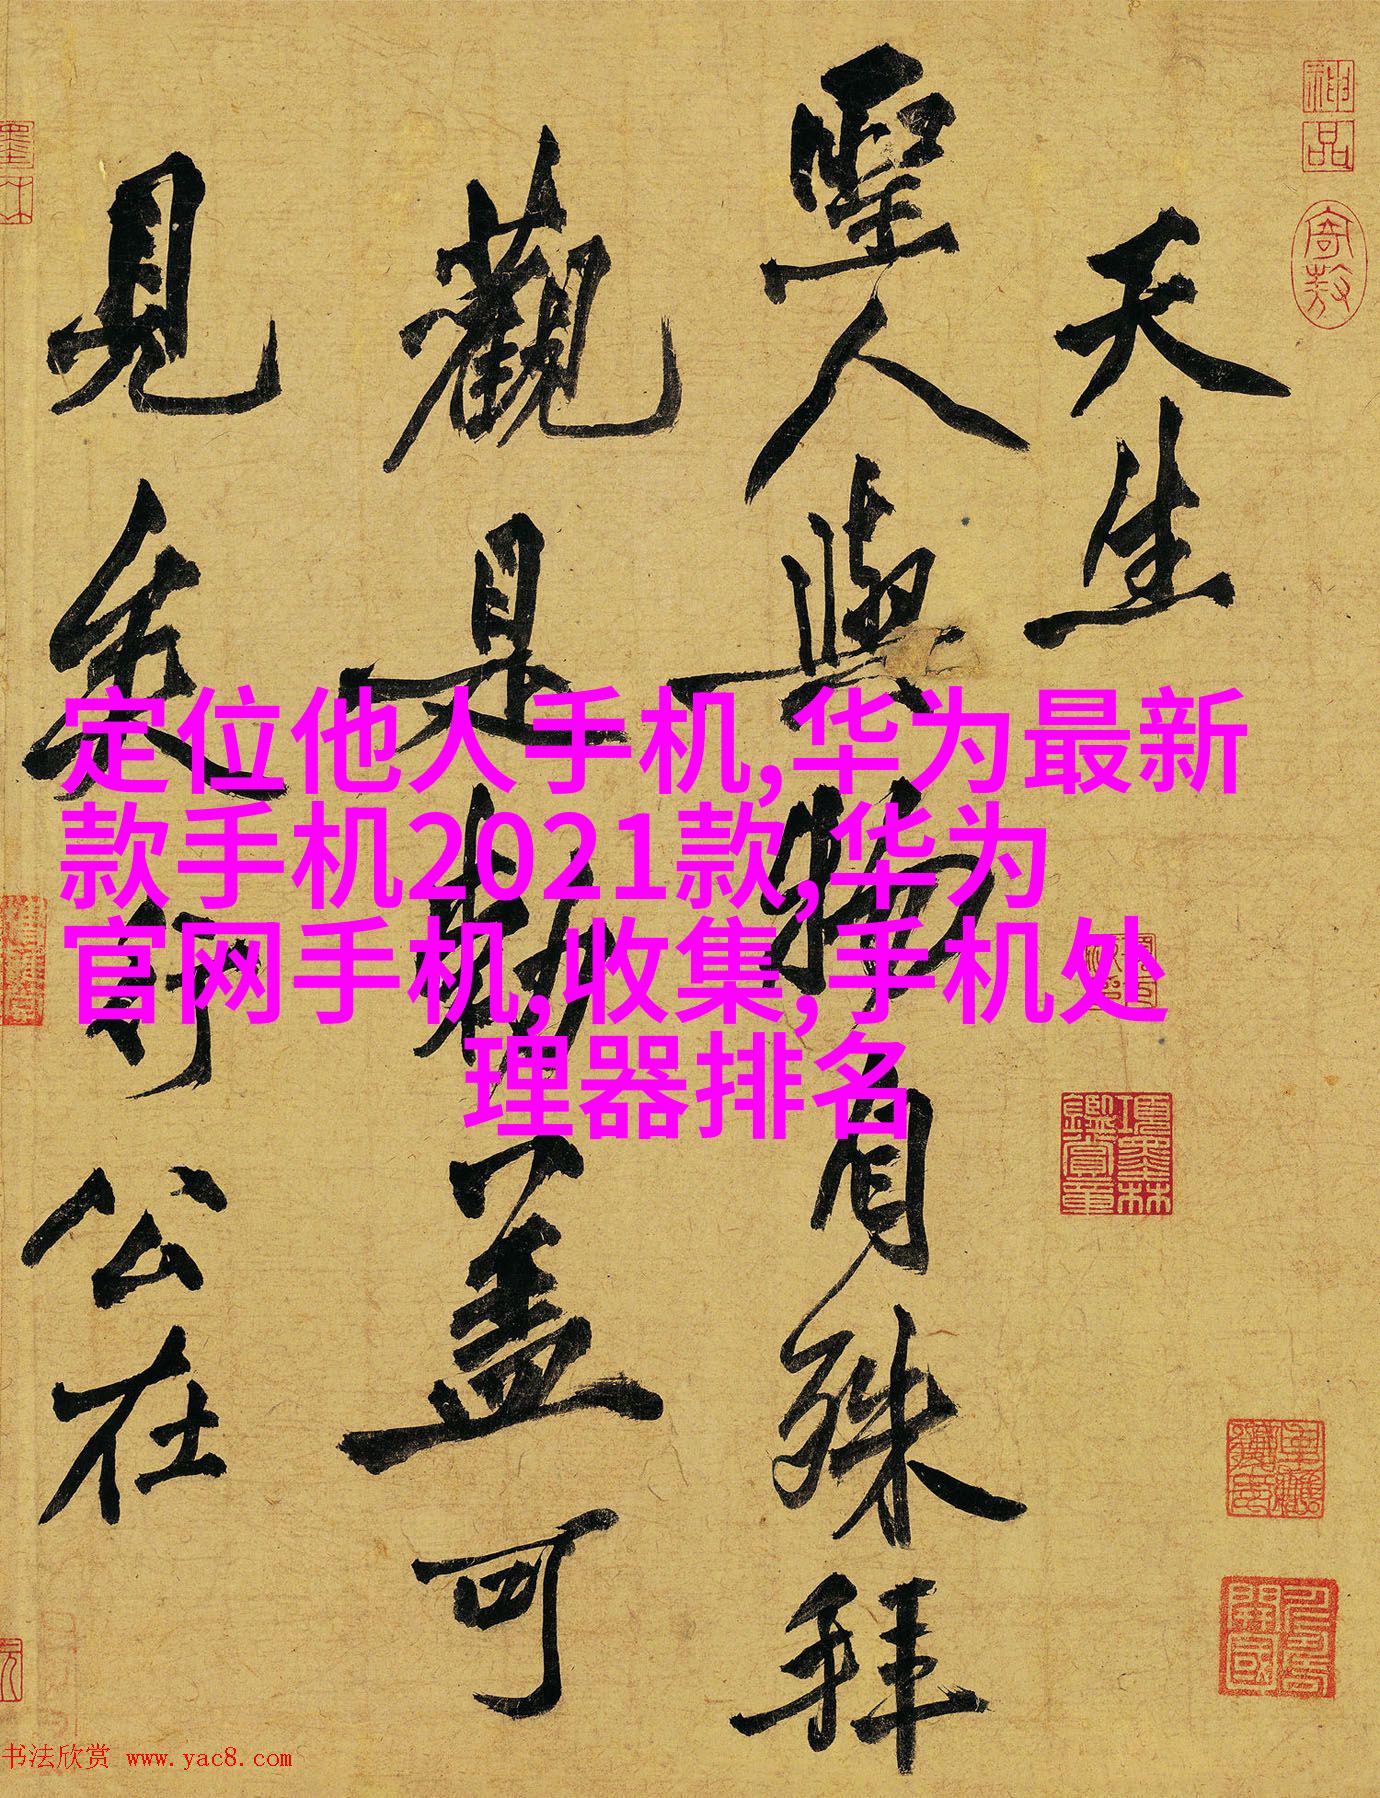 神品
寄敖
天生
聖人與 殊拜
觀是 蓋可
見矣 公在
定位他人手机,华为最新
款手机2021款,华为
官网手机,收集,手机处
理器排名
項墨林鑑賞章
书法欣赏 www.yac8.com